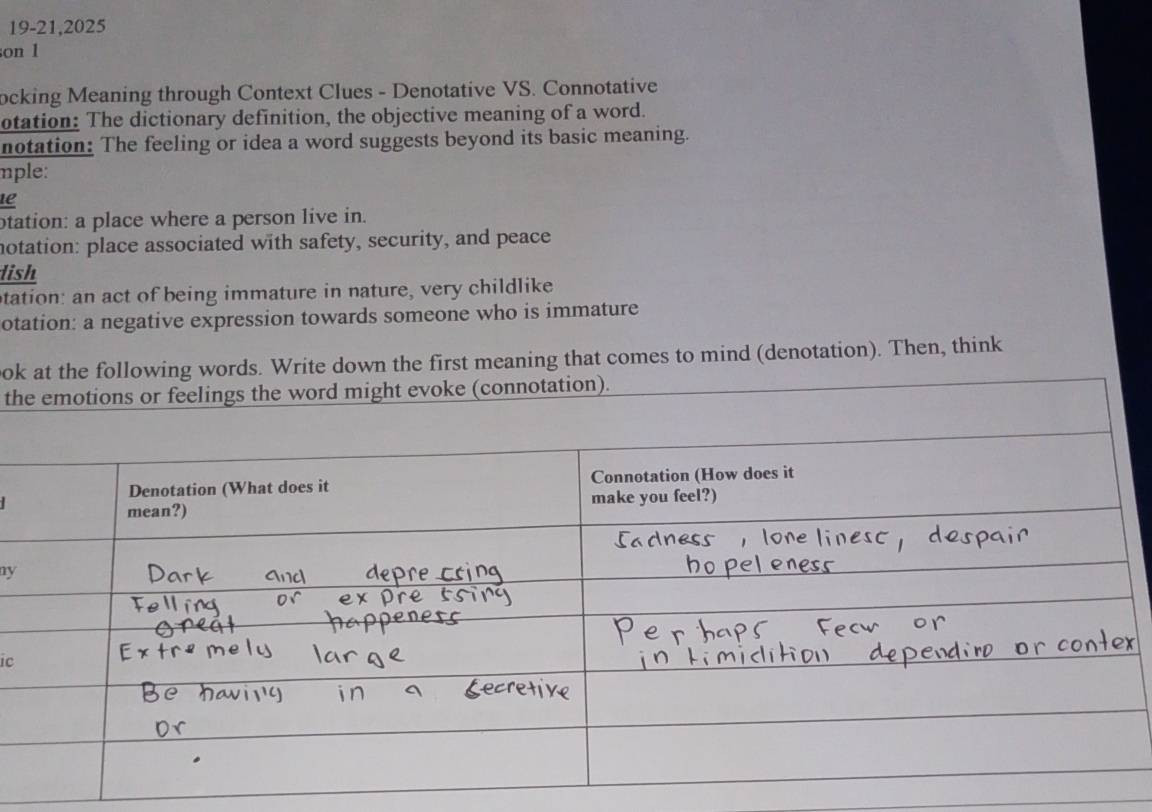 19-21,2025
son 1
ocking Meaning through Context Clues - Denotative VS. Connotative
otation: The dictionary definition, the objective meaning of a word.
notation: The feeling or idea a word suggests beyond its basic meaning.
mple:
ue
otation: a place where a person live in.
notation: place associated with safety, security, and peace
dish
otation: an act of being immature in nature, very childlike
otation: a negative expression towards someone who is immature
ook at the following words. Write down the first meaning that comes to mind (denotation). Then, think
the emotions or feelings the word might evoke (connotation).
d
Denotation (What does it
mean?)
Connotation (How does it
make you feel?)
ny
Dark and depressing
Sadness, lonelinesc, despair
hopeleness
Felling or expressing
great happeness
ic
Extremely large
Perhaps Fear or
intimidition depending or contex
Behaving in a secretive
or